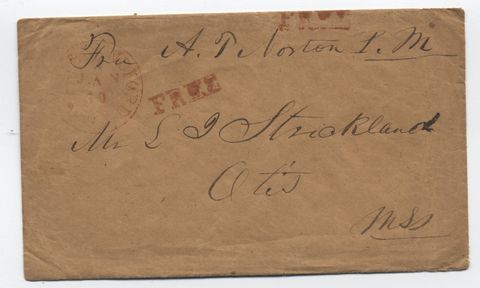 FREE
Free A. T Norton P. M
FREE
Mr L J Strickland
Otis
Mss